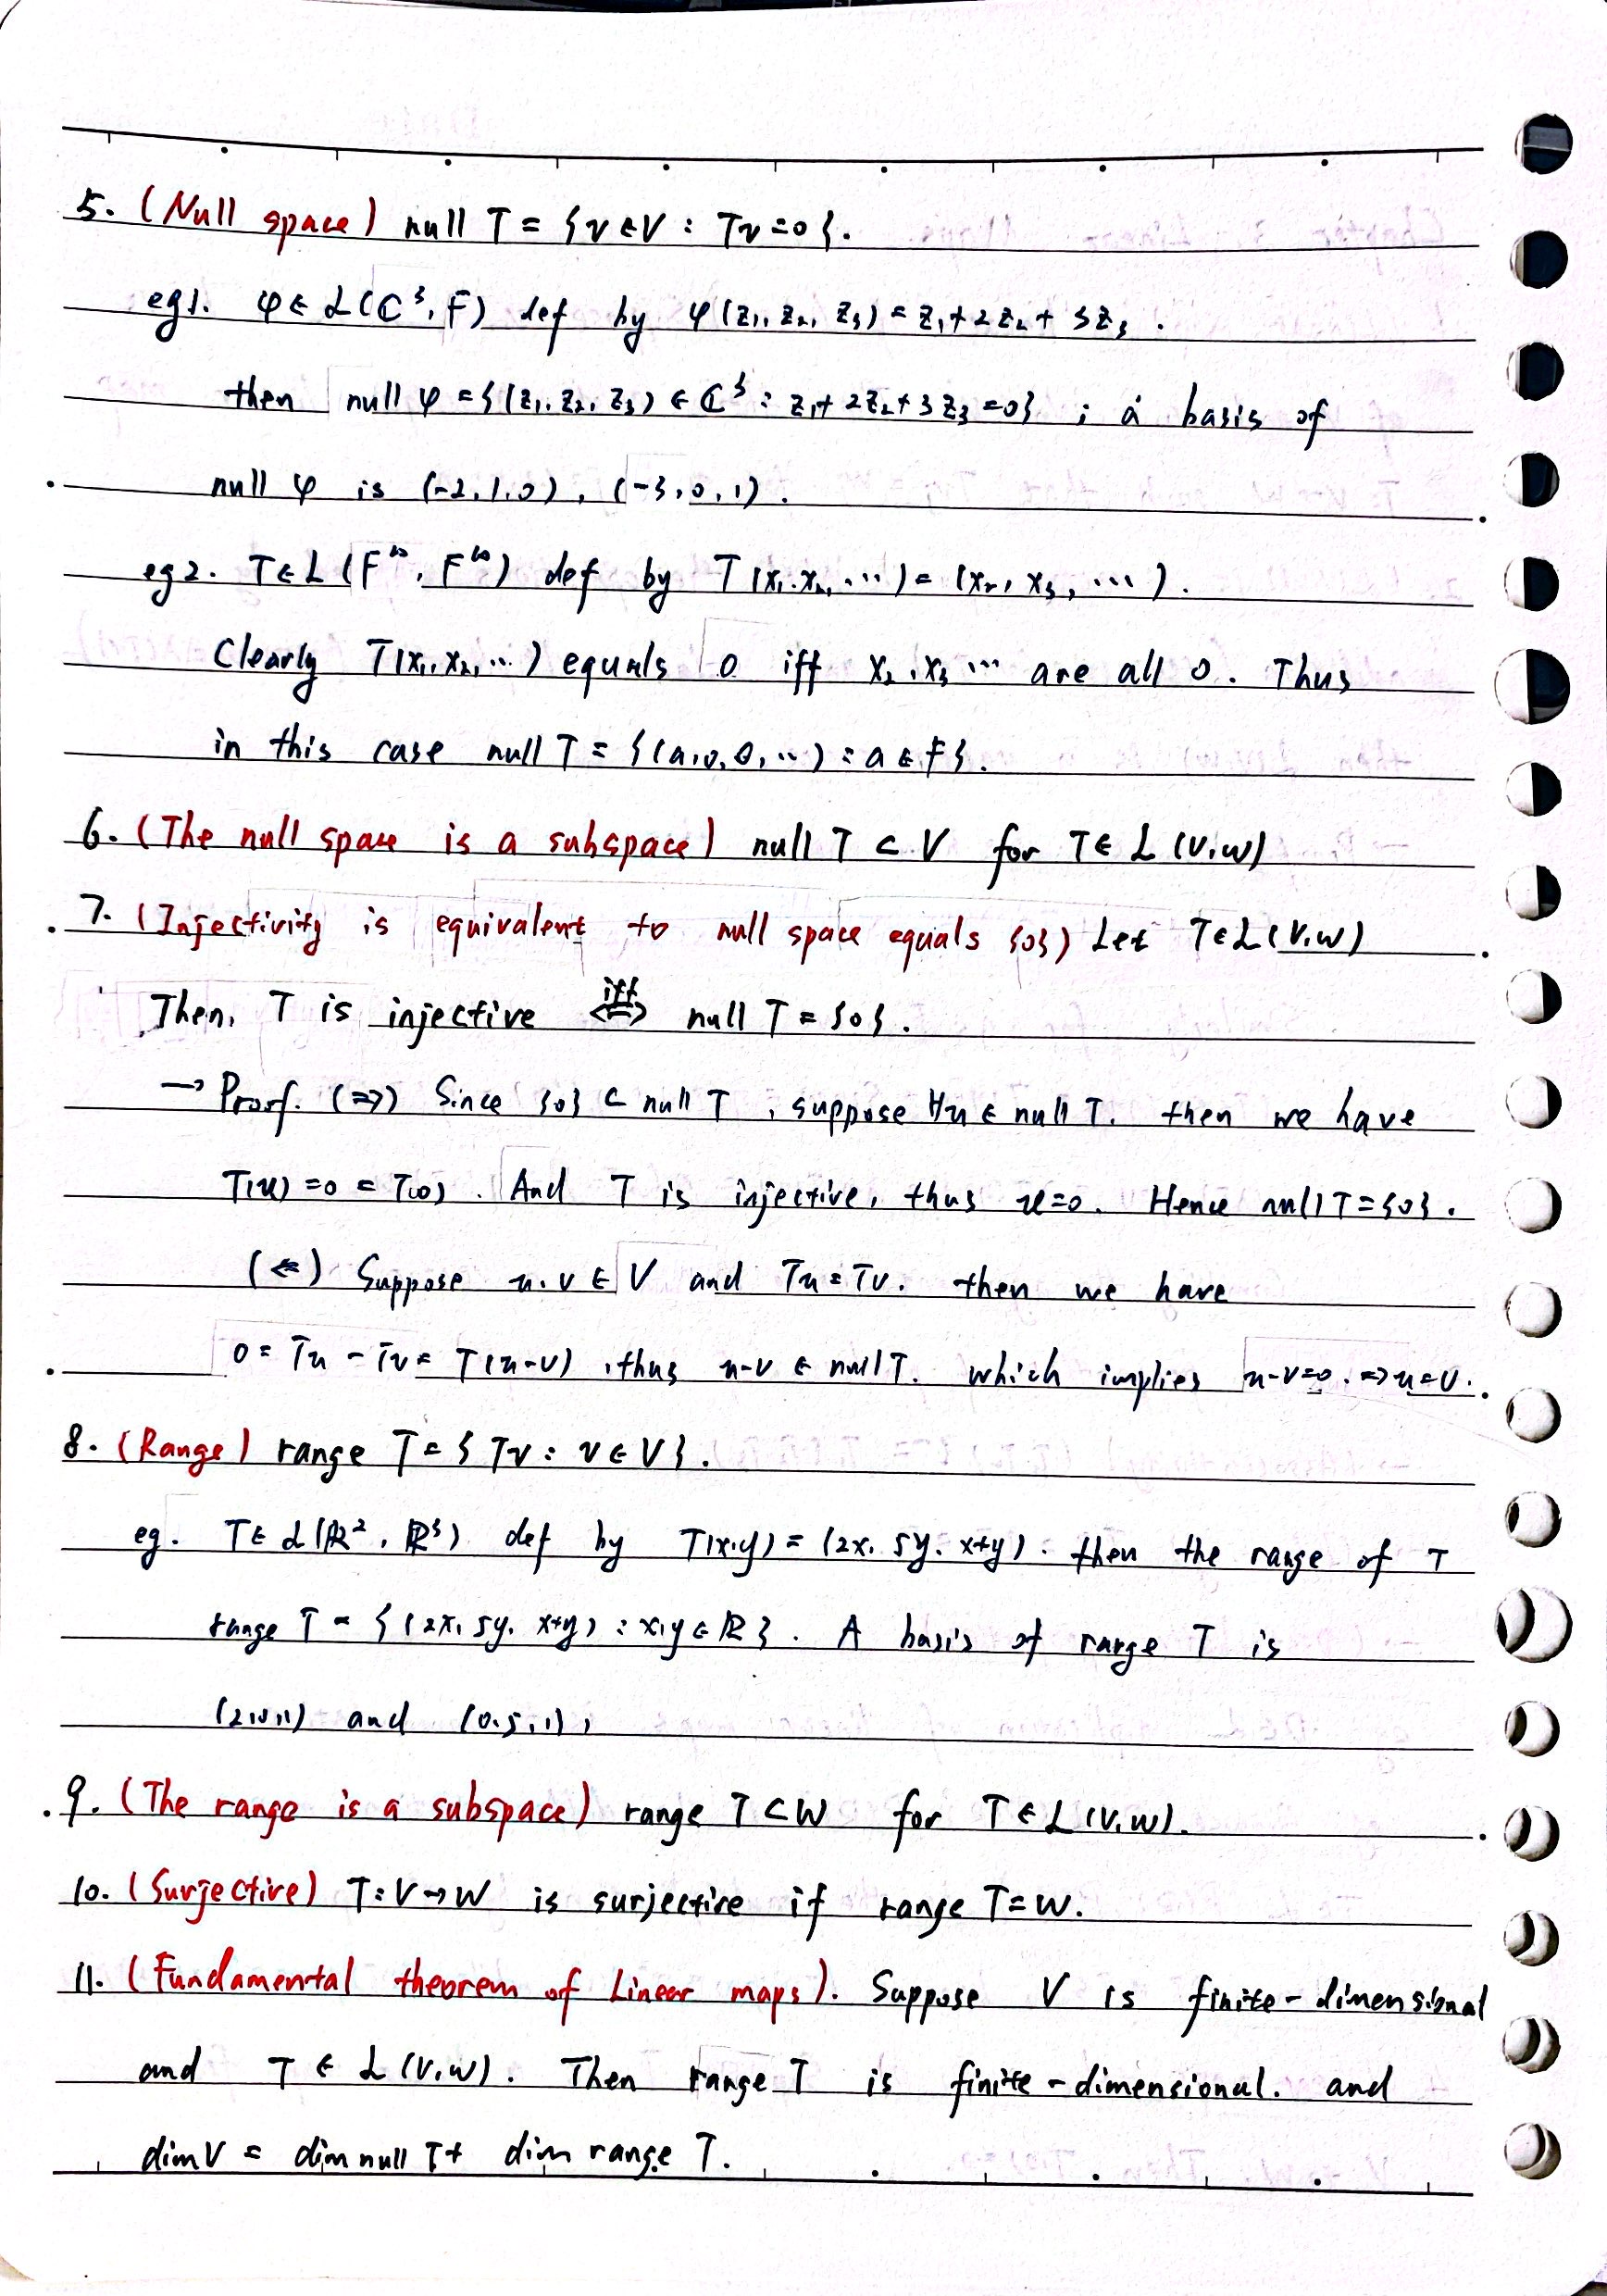 5. (Null space) null T = {v∈V : Tv=0}.
eg1. φ∈ℒ(ℂ³, F) def by φ(z₁, z₂, z₃) = z₁+2z₂+3z₃.
then null φ = {(z₁, z₂, z₃) ∈ ℂ³ : z₁+2z₂+3z₃=0} ; a basis of
null φ is (-2,1,0), (-3,0,1).
eg2. T∈ℒ(F^∞, F^∞) def by T(x₁, x₂, ...) = (x₂, x₃, ...).
Clearly T(x₁, x₂, ...) equals 0 iff x₂, x₃ ... are all 0. Thus
in this case null T = {(a,0,0,...) : a∈F}.
6. (The null space is a subspace) null T ⊂ V for T∈ℒ(V,W)
7. (Injectivity is equivalent to null space equals {0}) Let T∈ℒ(V,W)
Then, T is injective ⟺ iff null T = {0}.
→ Proof. (⇒) Since {0} ⊂ null T, suppose ∀u∈null T. then we have
T(u)=0=T(0). And T is injective, thus u=0. Hence null T={0}.
(⇐) Suppose u,v∈V and Tu=Tv. then we have
0 = Tu - Tv = T(u-v), thus u-v ∈ null T. which implies u-v=0. ⇒u=v.
8. (Range) range T = {Tv : v∈V}.
eg. T∈ℒ(ℝ², ℝ³) def by T(x,y) = (2x, 5y, x+y). then the range of T
range T = {(2x, 5y, x+y) : x,y∈ℝ}. A basis of range T is
(2,0,1) and (0,5,1),
9. (The range is a subspace) range T ⊂ W for T∈ℒ(V,W).
10. (Surjective) T:V→W is surjective if range T=W.
11. (Fundamental theorem of Linear maps). Suppose V is finite-dimensional
and T∈ℒ(V,W). Then range T is finite-dimensional. and
dim V = dim null T + dim range T.